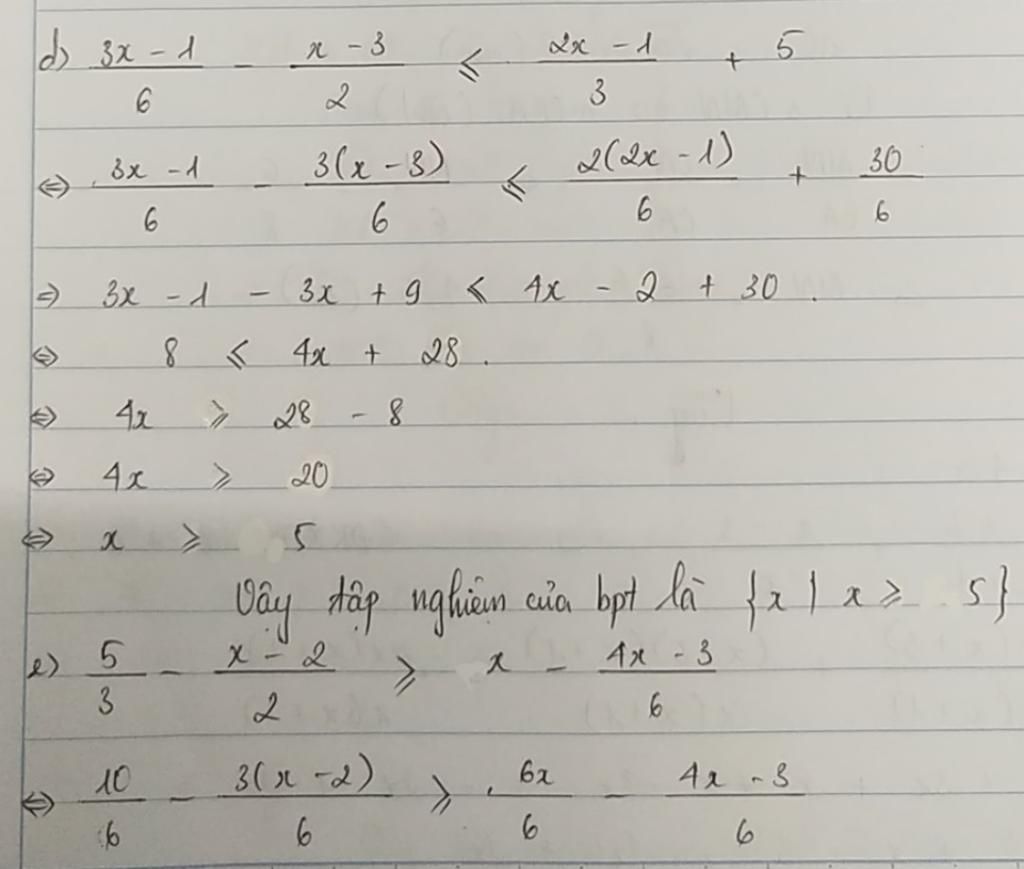 d) \frac{3x - 1}{6} - \frac{x - 3}{2} ≤ \frac{2x - 1}{3} + 5
⇔ \frac{3x - 1}{6} - \frac{3(x - 3)}{6} ≤ \frac{2(2x - 1)}{6} + \frac{30}{6}
⇒ 3x - 1 - 3x + 9 ≤ 4x - 2 + 30.
⇔ 8 ≤ 4x + 28.
⇔ 4x ≥ 28 - 8
⇔ 4x ≥ 20
⇔ x ≥ 5
Vậy tập nghiệm của bpt là {x | x ≥ 5}
e) \frac{5}{3} - \frac{x - 2}{2} ≥ x - \frac{4x - 3}{6}
⇔ \frac{10}{6} - \frac{3(x - 2)}{6} ≥ \frac{6x}{6} - \frac{4x - 3}{6}